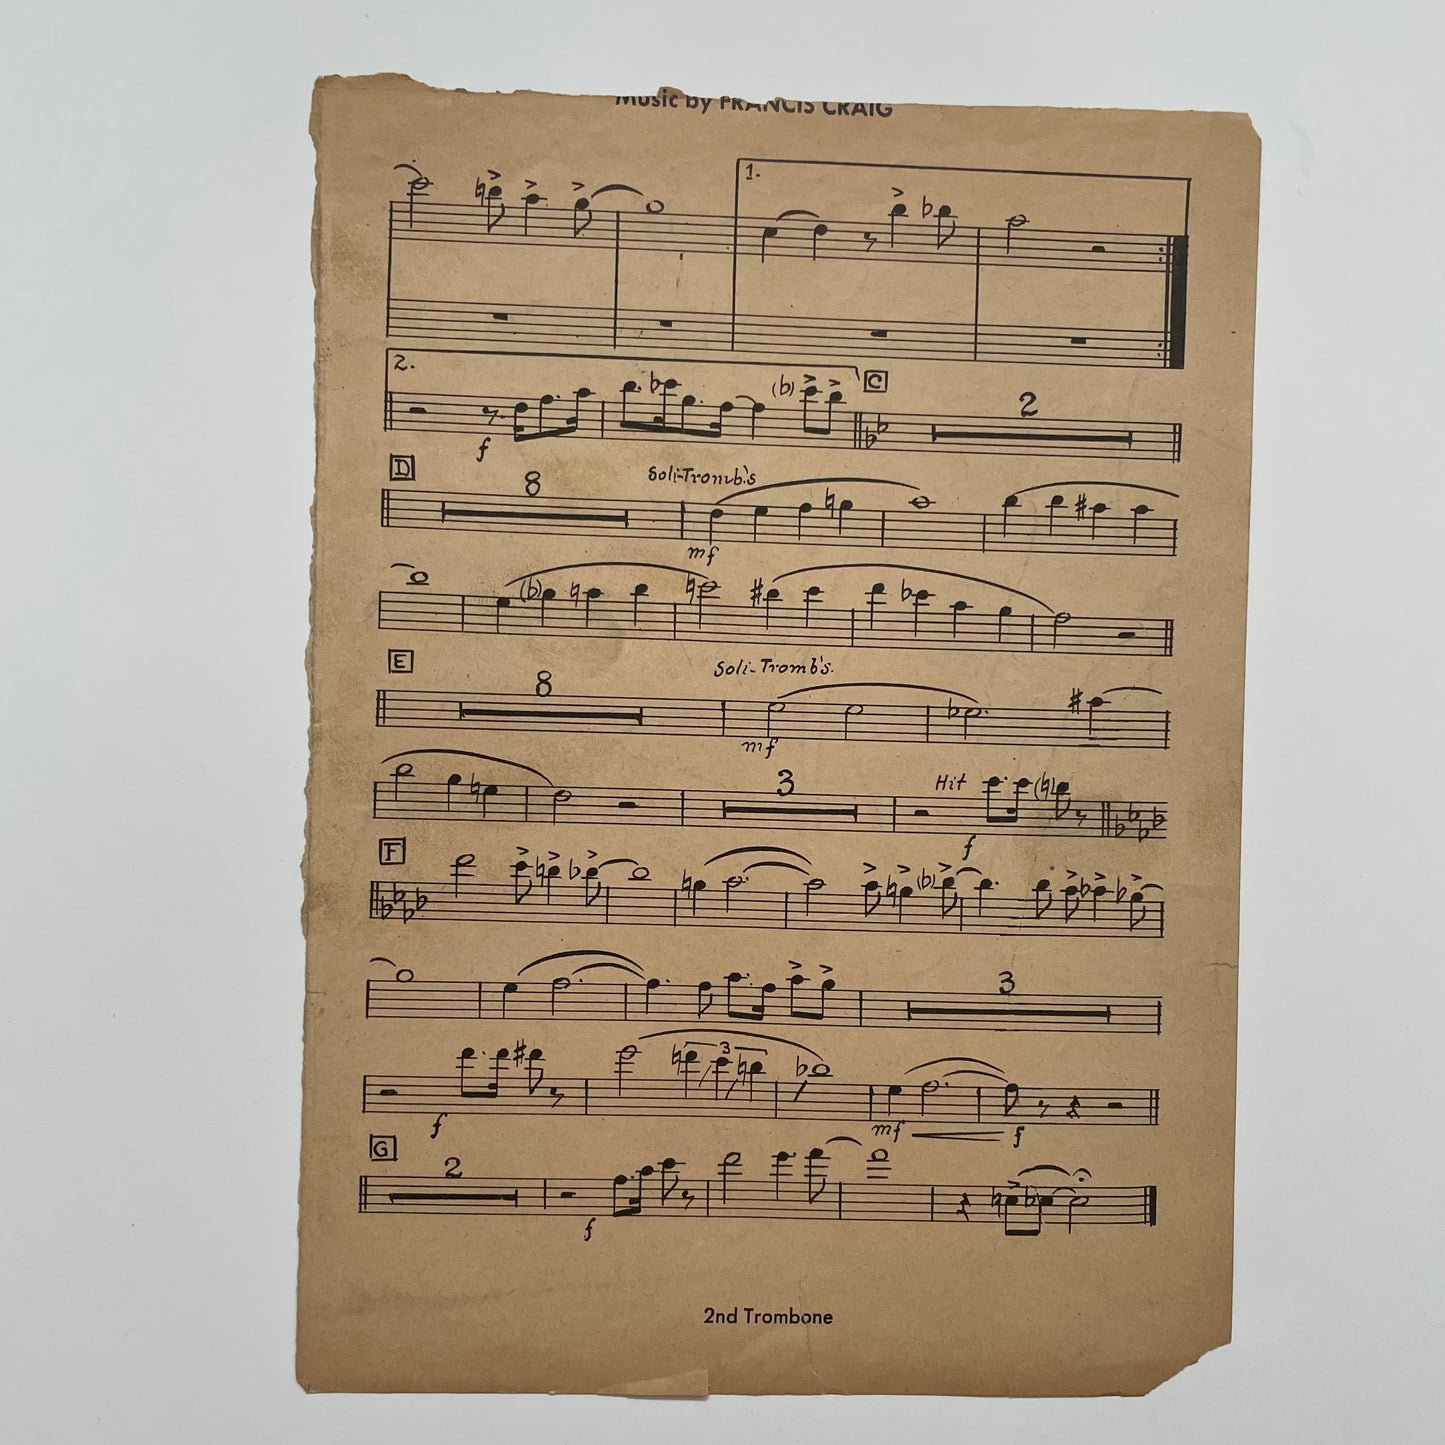 Music by FRANCIS CRAIG
1.
2.
f
(b)
C
2
D
8
Soli-Tromb's
mf
(b)
E
8
Soli-Tromb's.
mf
3
Hit
f
F
(b)
3
f
3
mf
f
G
2
f
2nd Trombone